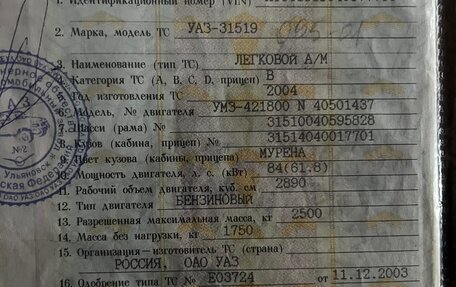 1. Идентификационный номер (VIN)
2. Марка, модель ТС УАЗ-31519
3. Наименование (тип ТС) ЛЕГКОВОЙ А/М
4. Категория ТС (A, B, C, D, прицеп) B
5. Год изготовления ТС 2004
6. Модель, № двигателя УМЗ-421800 N 40501437
7. Шасси (рама) № 31510040595828
8. Кузов (кабина, прицеп) № 31514040017701
9. Цвет кузова (кабины, прицепа) МУРЕНА
10. Мощность двигателя, л. с. (кВт) 84(61.8)
11. Рабочий объем двигателя, куб. см 2890
12. Тип двигателя БЕНЗИНОВЫЙ
13. Разрешенная максимальная масса, кг 2500
14. Масса без нагрузки, кг 1750
15. Организация—изготовитель ТС (страна)
РОССИЯ, ОАО УАЗ
16. Одобрение типа ТС № E03724 от 11.12.2003
УАЗ
№2
Ульяновск